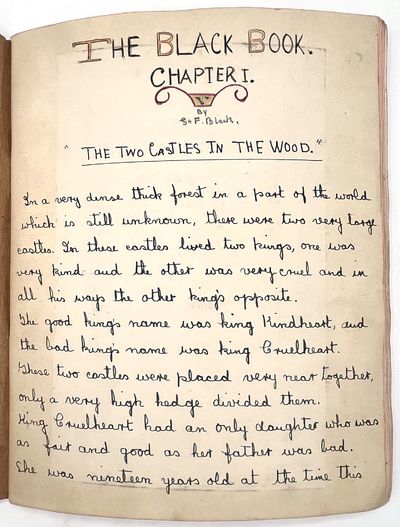 THE BLACK BOOK.
CHAPTER I.
V
BY
G & F. Black.
"THE TWO CASTLES IN THE WOOD."
In a very dense thick forest in a part of the world
which is still unknown, there were two very large
castles. In these castles lived two kings, one was
very kind and the other was very cruel and in
all his ways the other king's opposite.
The good king's name was king Kindheart, and
the bad king's name was king Cruelheart.
These two castles were placed very near together,
only a very high hedge divided them.
King Cruelheart had an only daughter who was
as fair and good as her father was bad.
She was nineteen years old at the time this